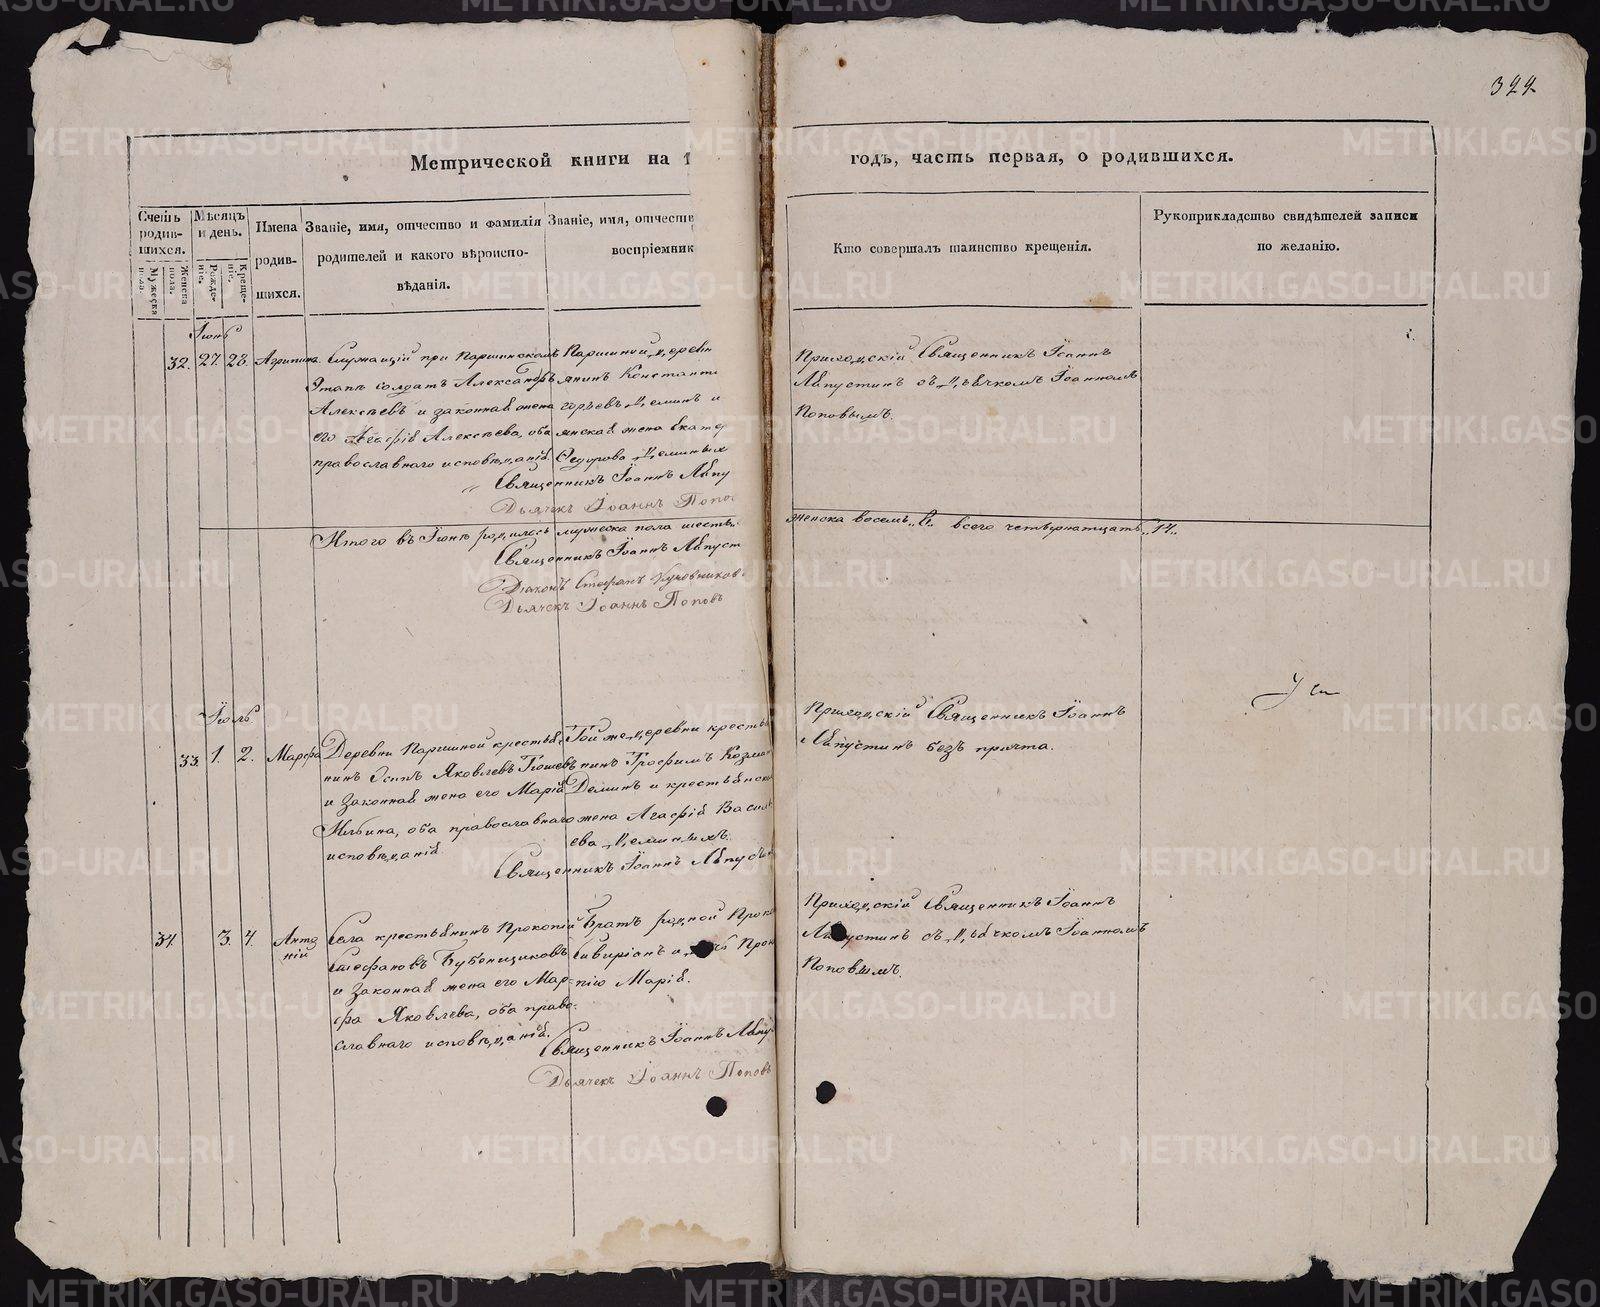 324
Метрической книги на 1
годъ, часть первая, о родившихся.
Счетъ родившихся.
Мужеска пола.
Женска пола.
Мѣсяцъ и день.
Рожденіе.
Крещеніе.
Имена родившихся.
Званіе, имя, отчество и фамилія
родителей и какого вѣроиспо-
вѣданія.
Званіе, имя, отчеств
воспріемник
Кто совершалъ таинство крещенія.
Рукоприкладство свидѣтелей записи
по желанію.
Іюнь
32. 27. 28. Агрипина.
Служащій при Паршинскомъ
Этапѣ солдатъ Александръ
Алексѣевъ и законная жена
его Агафія Алексѣева, оба
православнаго исповѣданія.
Паршиной деревни
янинъ Константи
горьевъ Деминъ и
янская жена Екатер
Ѳедорова Деминых
Священникъ Іоаннъ Авгу
Дьячекъ Іоаннъ Попо
Приходскій Священникъ Іоаннъ
Августинъ съ дьячкомъ Іоанномъ
Поповымъ.
Итого въ Іюнѣ родилось мужеска пола шесть,
женска восемь „8„ всего четырнатцать „14„
Священникъ Іоаннъ Август
Діаконъ Стефанъ
Дьячекъ Іоаннъ Поповъ
Іюль
33. 1. 2. Марфа
Деревни Паршиной крестья-
нинъ Осипъ Яковлевъ
и законная жена его Марія
Ильина, оба православнаго
исповѣданія.
Той же деревни кресть
нинъ Трофимъ Козмин
Деминъ и крестьянска
жена Агафія Василь
ева Деминыхъ.
Священникъ Іоаннъ Августи
Приходскій Священникъ Іоаннъ
Августинъ безъ причта.
34. 3. 4. Анто
ній
Села крестьянинъ Прокопій
Стефановъ Бубенщиковъ
и законная жена его Мар-
фа Яковлева, оба право-
славнаго исповѣданія.
Братъ родной Проко
пію Марія.
Священникъ Іоаннъ Авгу
Дьячекъ Іоаннъ Поповъ
Приходскій Священникъ Іоаннъ
Августинъ съ дьячкомъ Іоанномъ
Поповымъ.
METRIKI.GASO-URAL.RU